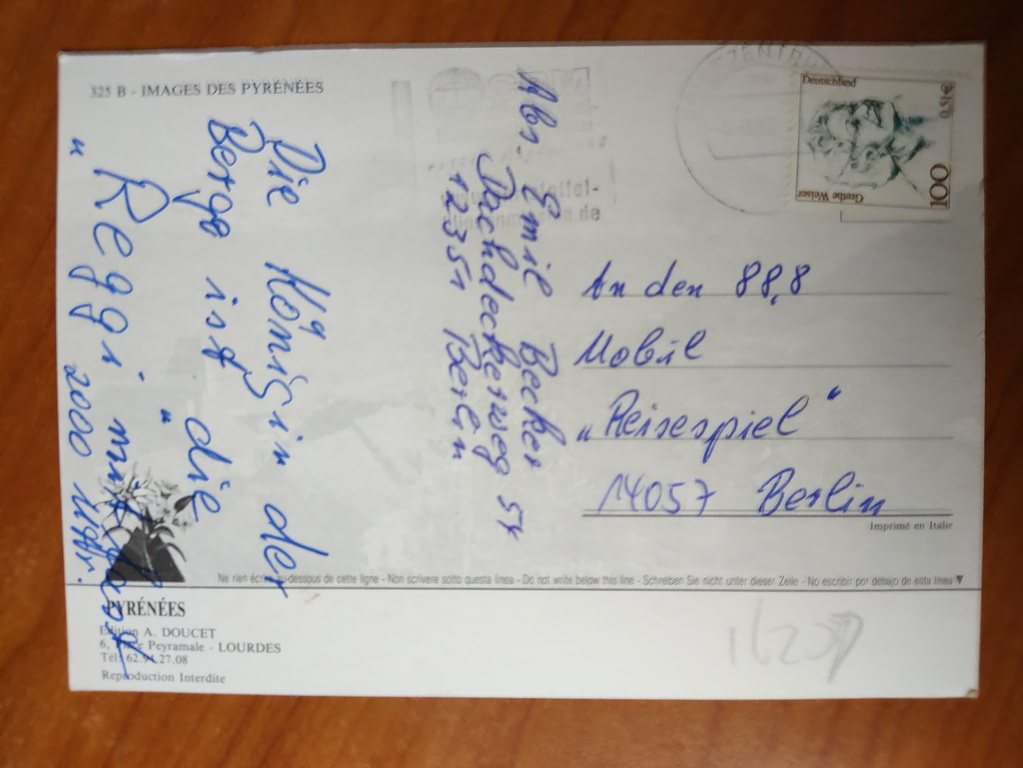 325 B - IMAGES DES PYRÉNÉES
Die Königin der
Berge ist "die
"Reggi mit fast
2000 Mtr.
Abs. Emil Becker
Dachdeckerweg 54
12351 Berlin
Deutschland
100
Grethe Weiser
An den 88,8
Mobil
"Reisespiel"
14057 Berlin
Imprimé en Italie
Ne rien écrire au-dessous de cette ligne - Non scrivere sotto questa linea - Do not write below this line - Schreiben Sie nicht unter dieser Zeile - No escribir por debajo de esta linea
PYRÉNÉES
Edition A. DOUCET
6, Peyramale - LOURDES
Tél. 62.94.27.08
Reproduction Interdite